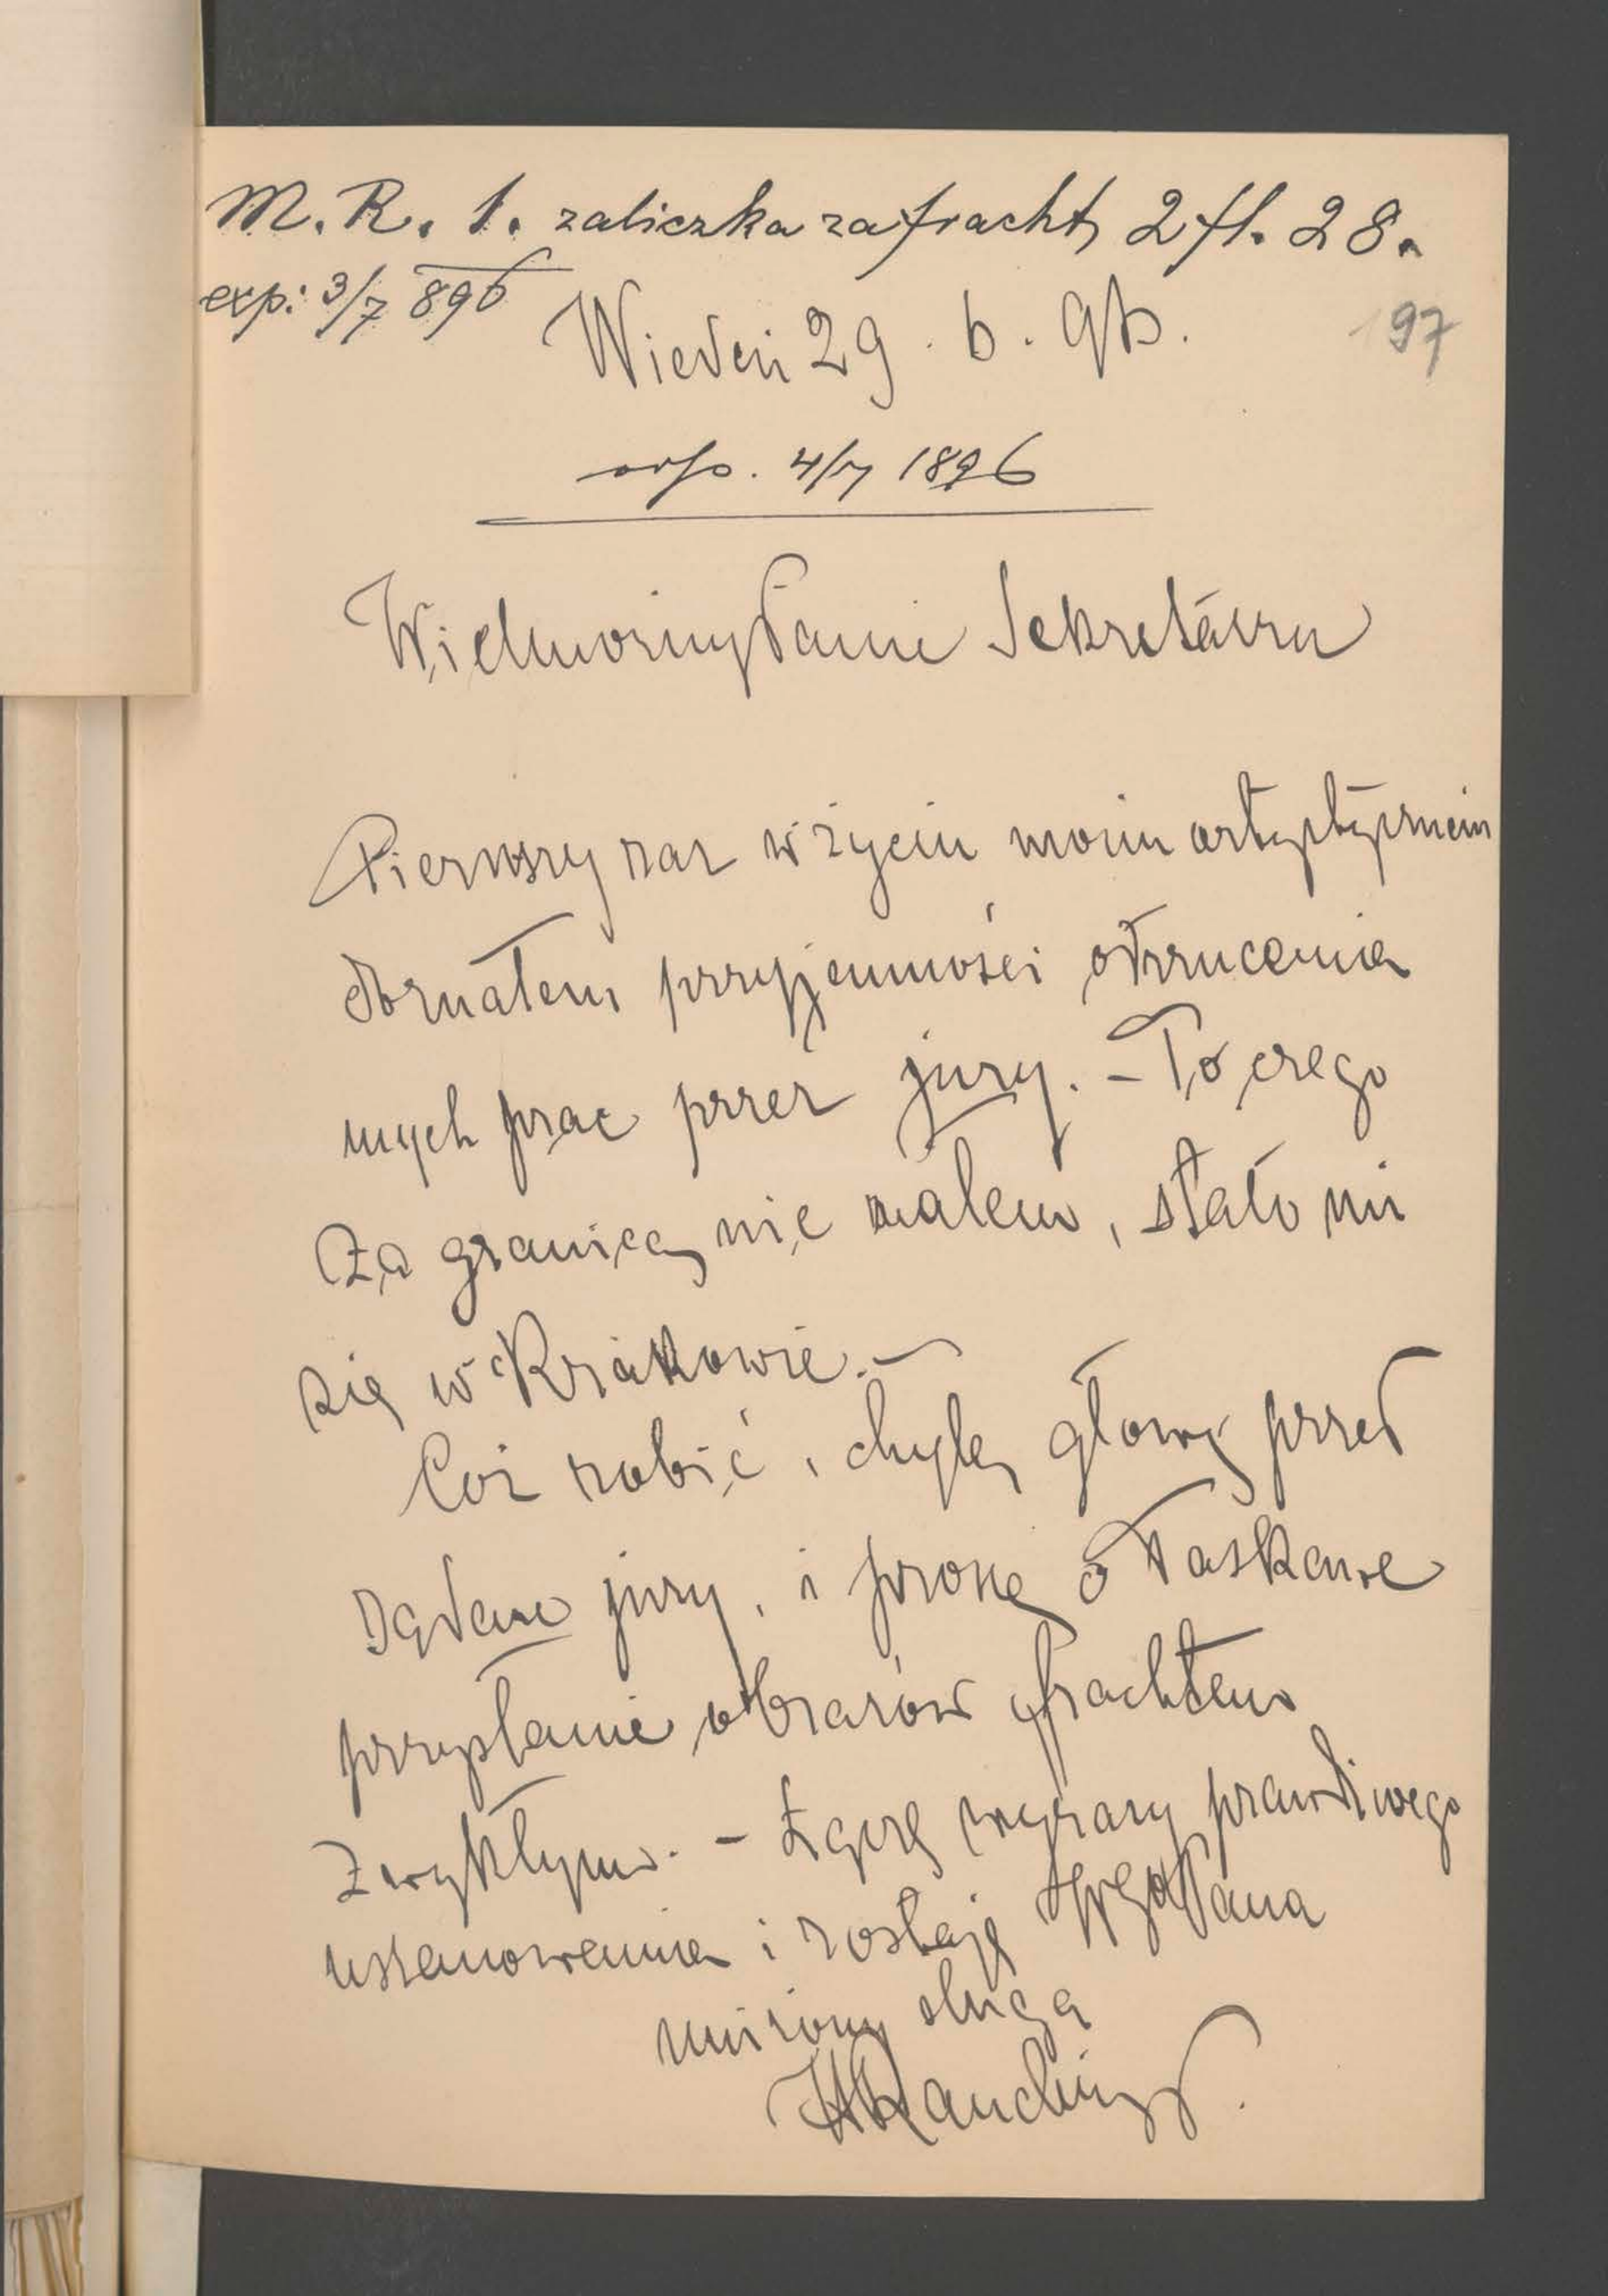 M. R. 1. zaliczka za fracht, 2 fl. 28.
exp: 3/7 896
Wiedeń 29. 6. 96.
197
odp. 4/7 1896
Wielmożny Panie Sekretárzu
Pierwszy raz w życiu moim artystycznem
doznałem przyjemności odrzucenia
mych prac przez jury. – To czego
Za granicą nie miałem, stało mi
się w Krakowie. –
Cóż robić, chylę głowę przed
sądem jury, i proszę o łaskawe
przysłanie obrazów frachtem
Zwykłym. – Łączę wyrazy prawdziwego
uszanowania i zostaję WgoPana
uniżony sługa
HRauchinger.